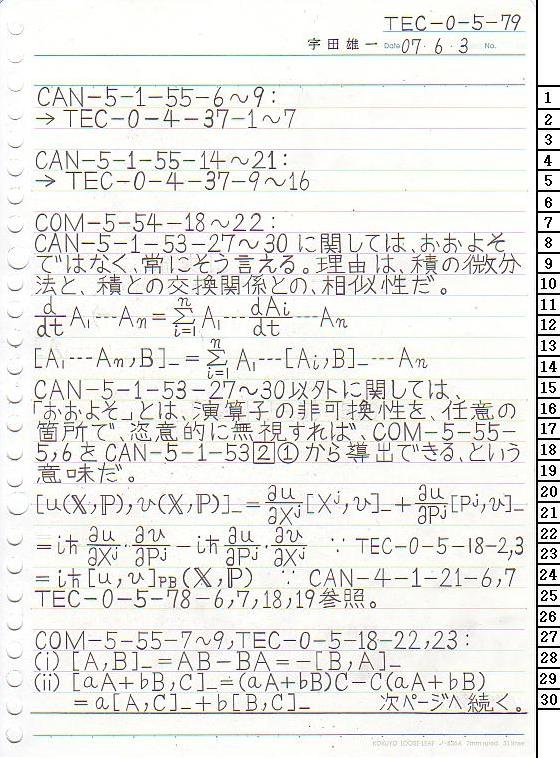 TEC-0-5-79
宇田雄一 Date 07・6・3 No.
CAN-5-1-55-6〜9:
→ TEC-0-4-37-1〜7
CAN-5-1-55-14〜21:
→ TEC-0-4-37-9〜16
COM-5-54-18〜22:
CAN-5-1-53-27〜30 に関しては、おおよそ
ではなく、常にそう言える。理由は、積の微分
法と、積との交換関係との、相似性だ。
d/dt A₁…Aₙ = Σ_{i=1}^{n} A₁… dAi/dt …Aₙ
[A₁…Aₙ, B]₋ = Σ_{i=1}^{n} A₁…[Ai, B]₋…Aₙ
CAN-5-1-53-27〜30以外に関しては、
「おおよそ」とは、演算子の非可換性を、任意の
箇所で、恣意的に無視すれば、COM-5-55-
5,6を CAN-5-1-53②①から導出できる、という
意味だ。
[u(𝕏,ℙ), υ(𝕏,ℙ)]₋ = ∂u/∂Xʲ [Xʲ, υ]₋ + ∂u/∂Pʲ [Pʲ, υ]₋
= iℏ ∂u/∂Xʲ・∂υ/∂Pʲ − iℏ ∂u/∂Pʲ・∂υ/∂Xʲ ∵ TEC-0-5-18-2,3
= iℏ [u, υ]PB (𝕏,ℙ) ∵ CAN-4-1-21-6,7
TEC-0-5-78-6,7,18,19参照。
COM-5-55-7〜9, TEC-0-5-18-22,23:
(i) [A,B]₋ = AB−BA = −[B,A]₋
(ii) [aA+bB,C]₋ = (aA+bB)C−C(aA+bB)
= a[A,C]₋ + b[B,C]₋ 次ページへ続く。
KOKUYO LOOSE-LEAF ノ-836A 7mm ruled 31 lines
1
2
3
4
5
6
7
8
9
10
11
12
13
14
15
16
17
18
19
20
21
22
23
24
25
26
27
28
29
30